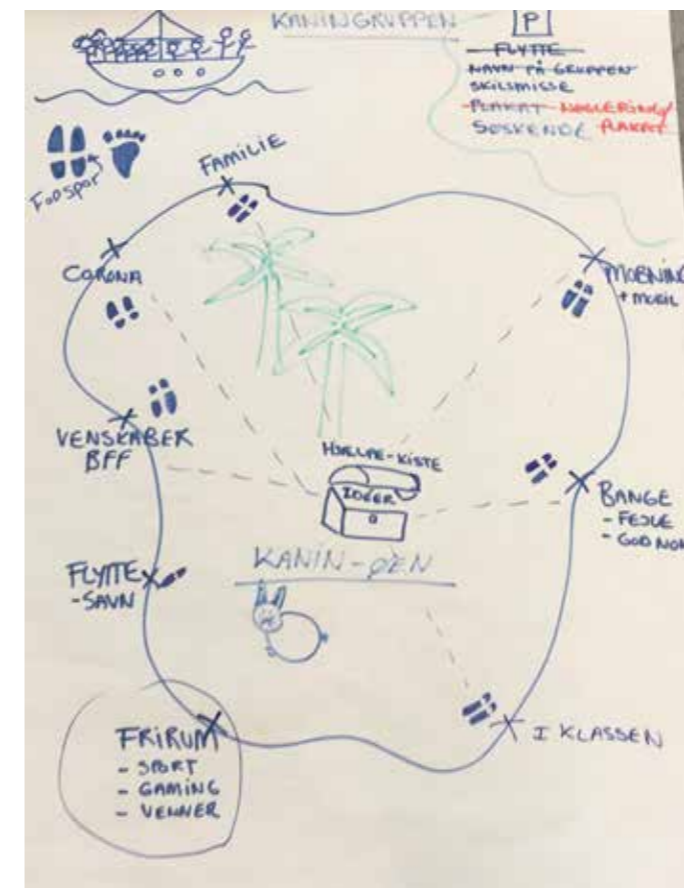 KANINGRUPPEN
P
FLYTTE
NAVN PÅ GRUPPEN
SKILSMISSE
PLAKAT NØGLERING/
SØSKENDE PLAKAT
Fodspor
FAMILIE
CORONA
MOBNING
+ MOBIL
VENSKABER
BFF
HJÆLPE-KISTE
IDÉER
BANGE
- FEJLE
- GOD NOK
KANIN-ØEN
FLYTTE
- SAVN
FRIRUM
- SPORT
- GAMING
- VENNER
I KLASSEN